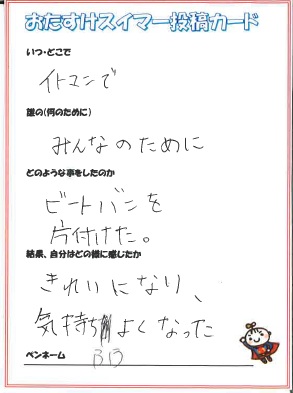 おたすけスイマー投稿カード
いつ・どこで
イトマンで
誰の(何のために)
みんなのために
どのような事をしたのか
ビートバンを
片付けた。
結果、自分はどの様に感じたか
きれいになり、
気持ちよくなった
ペンネーム